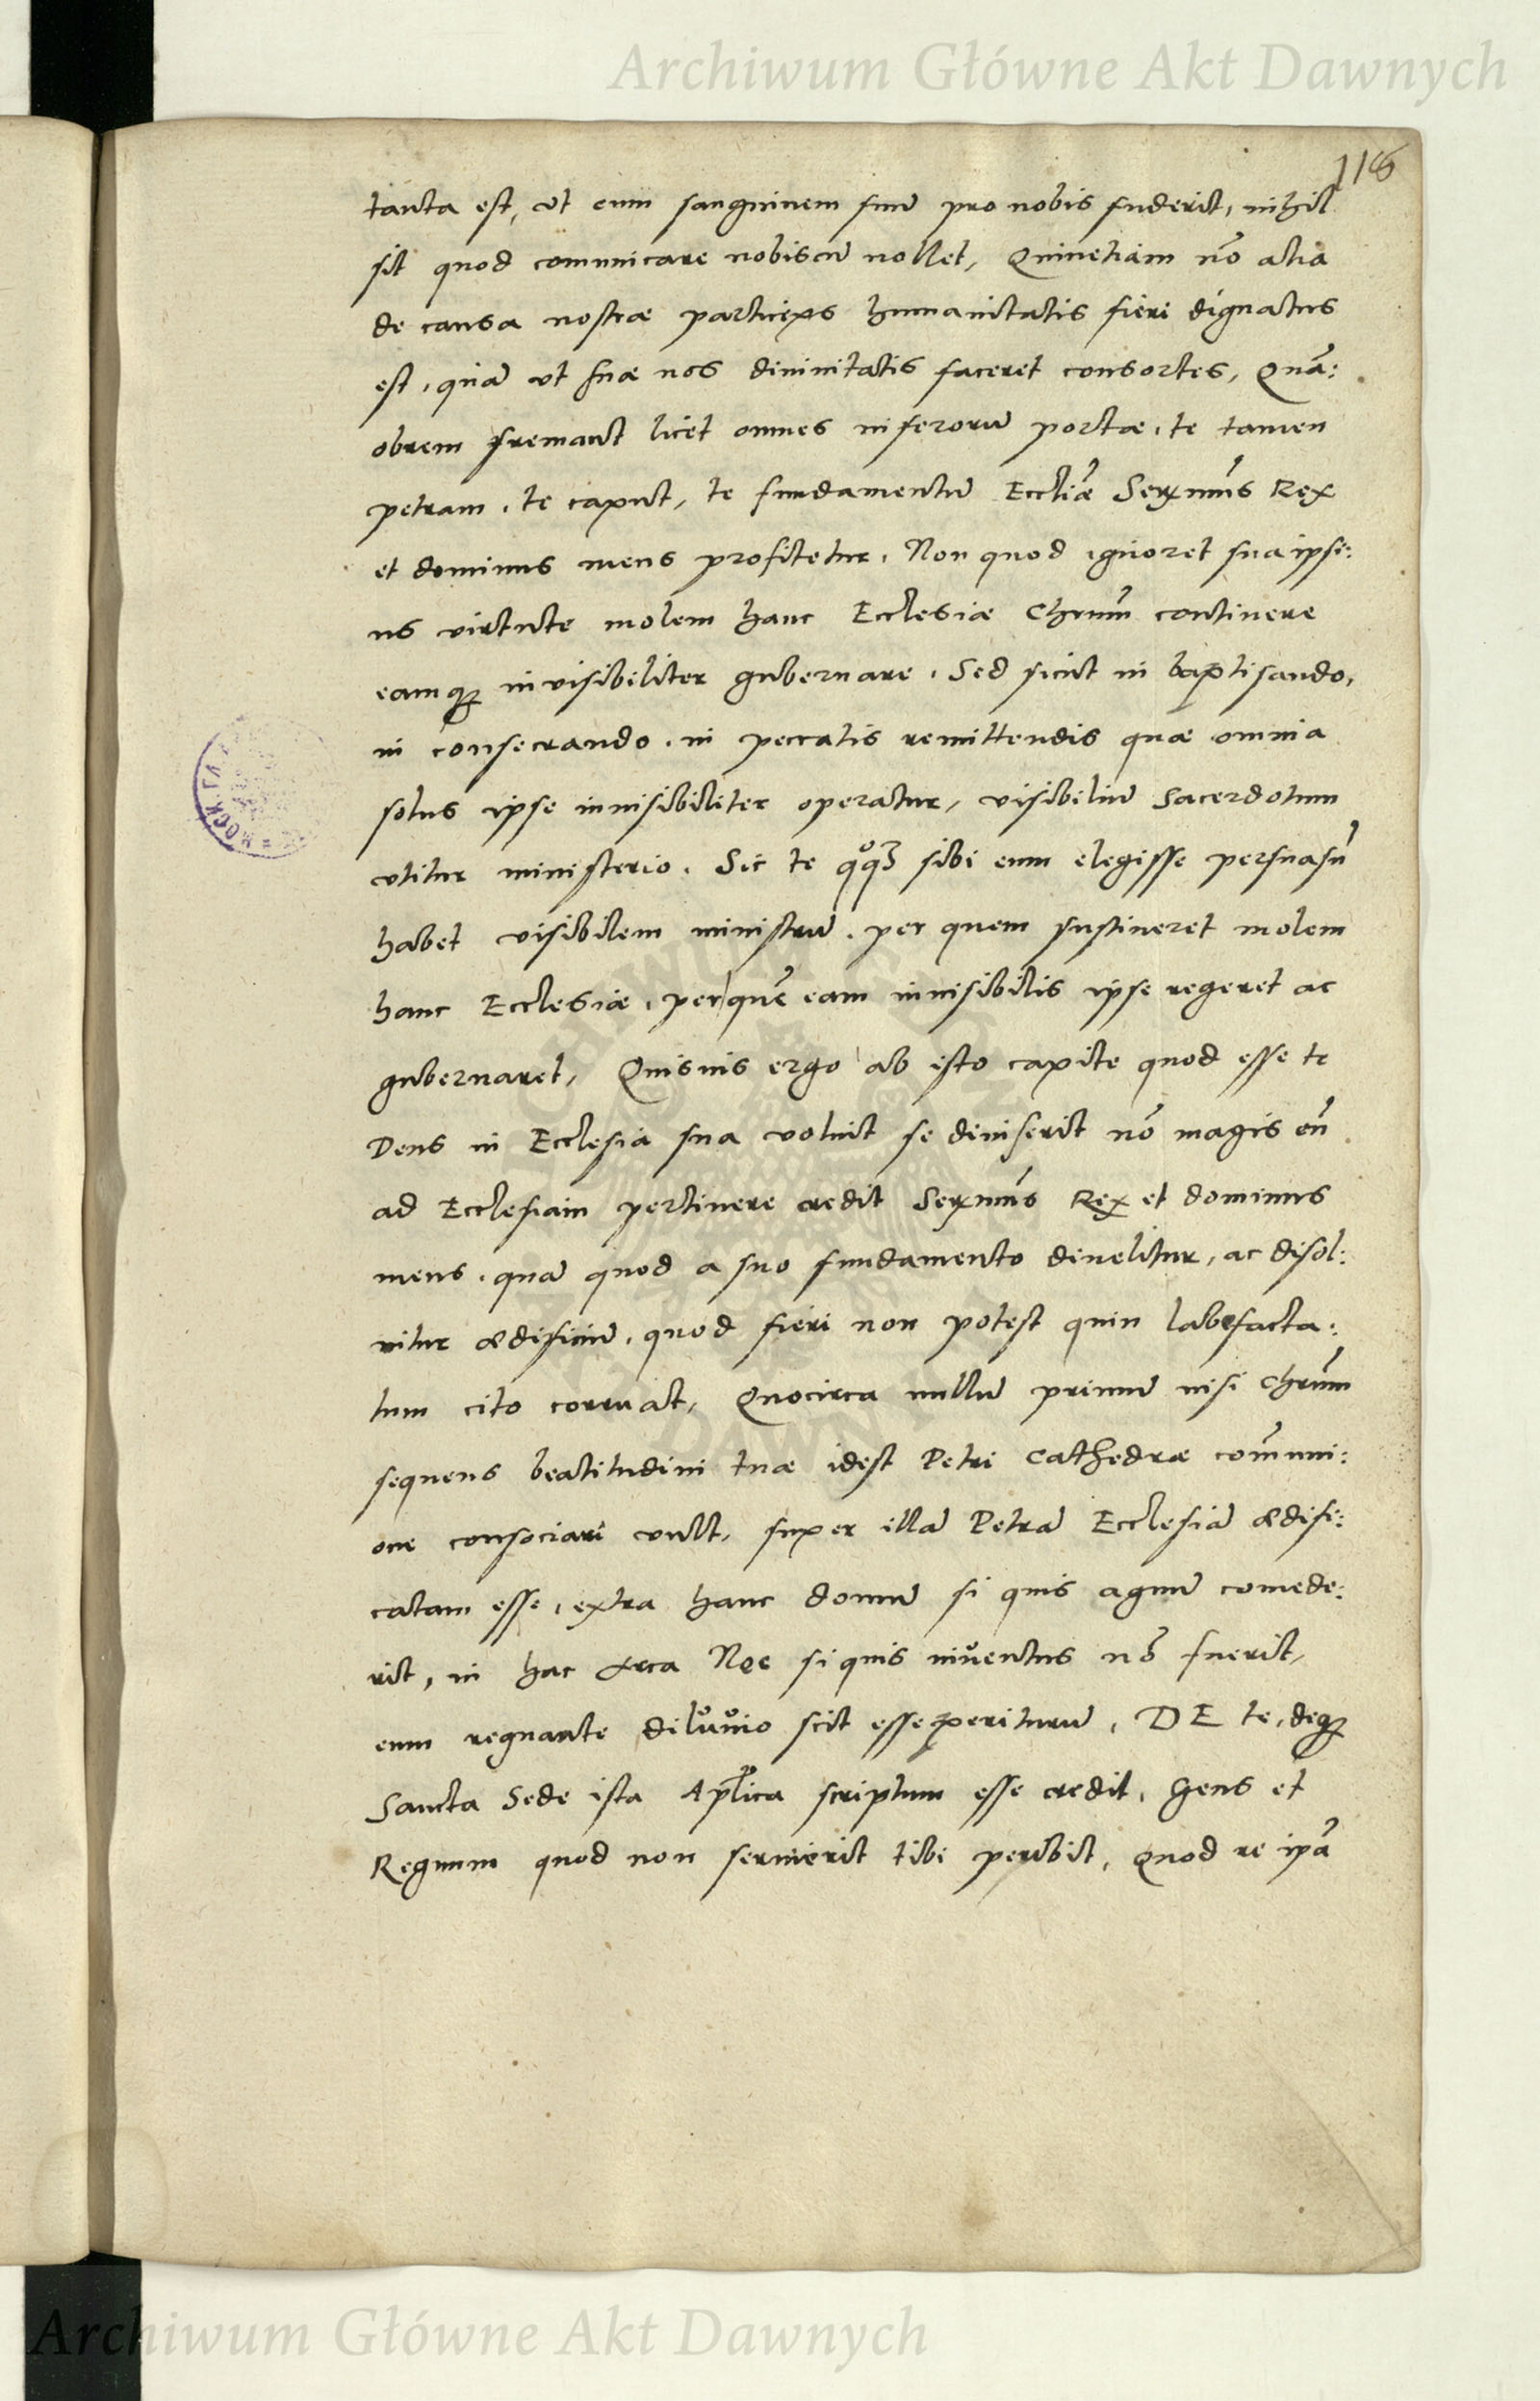 Archiwum Główne Akt Dawnych
116
tanta est, ut cum sanguinem suũ pro nobis fuderit, nihil
sit quod comunicare nobiscũ nollet, Quinetiam nõ alia
de causa nostræ particeps humanitatis fieri dignatus
est, quã ut suæ nos divinitatis faceret consortes, Quã:
obrem fremant licet omnes inferorũ portæ, te tamen
petram, te caput, te fundamentũ Eccliæ Serxmus Rex
et dominus meus profitetur. Non quod ignoret sua ipsi:
us virtute molem hanc Ecclesiæ Chrum continere
eamq; invisibiliter gubernare. Sed sicut in baptisando,
in consecrando, in peccatis remittendis quæ omnia
solus ipse invisibiliter operatur, visibiliũ Sacerdotum
utitur ministerio. Sic te quoq; sibi eum elegisse persuasũ
habet visibilem ministrũ, per quem sustineret molem
hanc Ecclesiæ, per quẽ eam invisibilis ipse regeret ac
gubernaret, Quisuis ergo ab isto capite quod esse te
Deus in Ecclesia sua voluit se diviserit nõ magis eũ
ad Ecclesiam pertinere credit Serxmus Rex et dominus
meus, quã quod a suo fundamento divelitur, ac disol:
vitur ædificiũ, quod fieri non potest quin labefacta:
tum cito corruat, Quocirca nullũ primũ nisi Chrum
sequens beatitudini tuæ idest Petri Cathedræ comuni:
one consociari vult, super illã Petrã Ecclesiã ædifi:
catam esse, extra hanc domũ si quis agnũ comede:
rit, in hac Arca Noe si quis inventus nõ fuerit,
eum regnante diluvio scit esse periturũ, DE te, deq;
Sancta Sede ista Aplica scriptum esse credit, Gens et
Regnum quod non servierit tibi peribit, Quod re ipã
Archiwum Główne Akt Dawnych